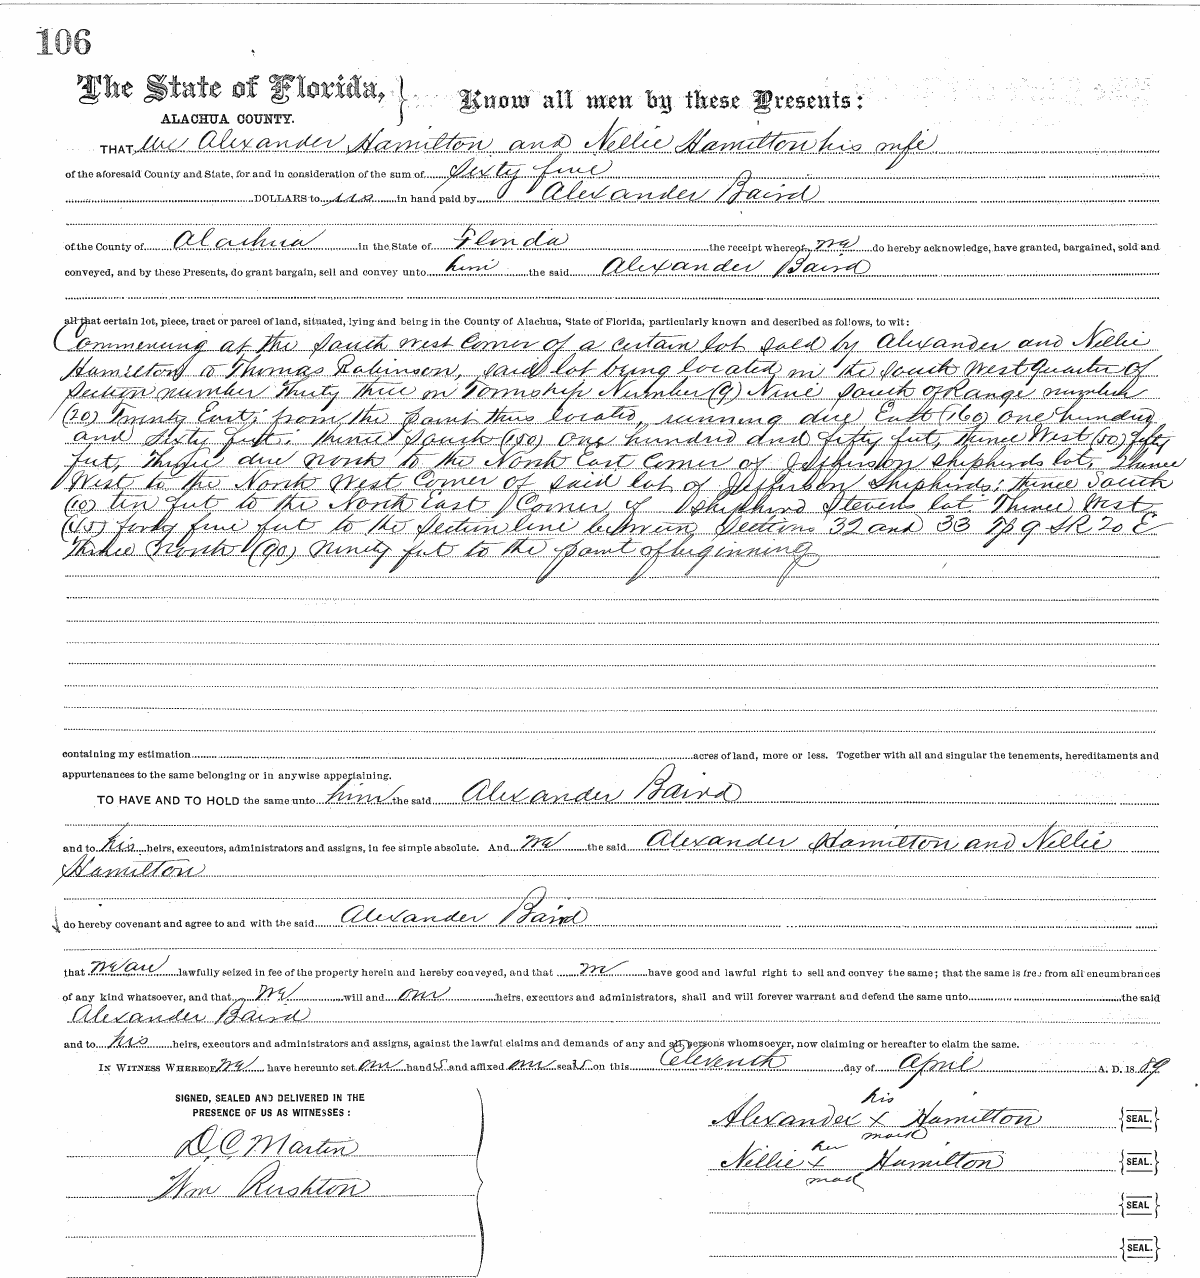 106
The State of Florida,
ALACHUA COUNTY.
Know all men by these Presents:
THAT we Alexander Hamilton and Nellie Hamilton his wife
of the aforesaid County and State, for and in consideration of the sum of Sixty five
DOLLARS to us in hand paid by Alexander Baird
of the County of Alachua in the State of Florida the receipt whereof we do hereby acknowledge, have granted, bargained, sold and
conveyed, and by these Presents, do grant bargain, sell and convey unto him the said Alexander Baird
all that certain lot, piece, tract or parcel of land, situated, lying and being in the County of Alachua, State of Florida, particularly known and described as follows, to wit:
Commencing at the South West Corner of a certain lot sold by Alexander and Nellie
Hamilton to Thomas Robinson, said lot being located in the South West quarter of
Section number Thirty three in Township Number (9) Nine South of Range number
(20) Twenty East; from the point thus located, running due East (160) one hundred
and sixty feet. Thence South (150) one hundred and fifty feet, Thence West (50) fifty
feet, Thence due north to the North East Corner of Jefferson Shepherds lot. Thence
West to the North West Corner of said lot of Jefferson Shepherds; thence South
(10) ten feet to the North East Corner of Shepherd Stevens lot. Thence West
(45) forty five feet to the Section line between Sections 32 and 33 Tp 9 S R 20 E
Thence North (90) ninety feet to the point of beginning
containing my estimation acres of land, more or less. Together with all and singular the tenements, hereditaments and
appurtenances to the same belonging or in anywise appertaining.
TO HAVE AND TO HOLD the same unto him the said Alexander Baird
and to his heirs, executors, administrators and assigns, in fee simple absolute. And we the said Alexander Hamilton and Nellie
Hamilton
do hereby covenant and agree to and with the said Alexander Baird
that we are lawfully seized in fee of the property herein and hereby conveyed, and that we have good and lawful right to sell and convey the same; that the same is free from all encumbrances
of any kind whatsoever, and that we will and our heirs, executors and administrators, shall and will forever warrant and defend the same unto the said
Alexander Baird
and to his heirs, executors and administrators and assigns, against the lawful claims and demands of any and all persons whomsoever, now claiming or hereafter to claim the same.
IN WITNESS WHEREOF we have hereunto set our hands and affixed our seals on this Eleventh day of April A. D. 1889
SIGNED, SEALED AND DELIVERED IN THE
PRESENCE OF US AS WITNESSES:
D. C. Martin
Wm Rushton
his
Alexander x Hamilton SEAL.
mark
her
Nellie x Hamilton SEAL.
mark
SEAL
SEAL.